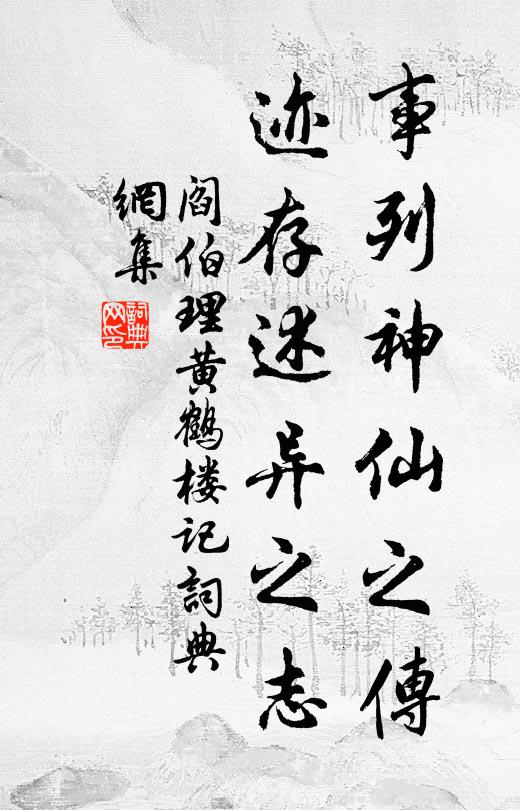 事列神仙之傳
迹存述异之志
阎伯理黄鹤楼记詞典
網集
詞典
网印